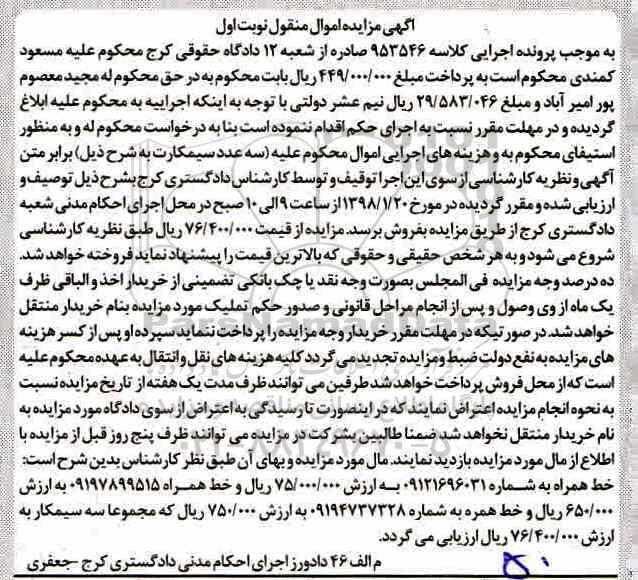 آگهی مزایده اموال منقول نوبت اول
به موجب پرونده اجرایی کلاسه ۹۵۳۵۴۶ صادره از شعبه ۱۲ دادگاه حقوقی کرج محکوم علیه مسعود
کمندی محکوم است به پرداخت مبلغ ۴۴۹/۰۰۰/۰۰۰ ریال بابت محکوم به در حق محکوم له مجید معصوم
پور امیر آباد و مبلغ ۲۹/۵۸۳/۰۴۶ ریال نیم عشر دولتی با توجه به اینکه اجراییه به محکوم علیه ابلاغ
گردیده و در مهلت مقرر نسبت به اجرای حکم اقدام ننموده است بنا به درخواست محکوم له و به منظور
استیفای محکوم به و هزینه های اجرایی اموال محکوم علیه (سه عدد سیمکارت به شرح ذیل) برابر متن
آگهی و نظریه کارشناسی از سوی این اجرا توقیف و توسط کارشناس دادگستری کرج بشرح ذیل توصیف و
ارزیابی شده و مقرر گردیده در مورخ ۱۳۹۸/۱/۲۰ از ساعت ۹ الی ۱۰ صبح در محل اجرای احکام مدنی شعبه
دادگستری کرج از طریق مزایده بفروش برسد. مزایده از قیمت ۷۶/۴۰۰/۰۰۰ ریال طبق نظریه کارشناسی
شروع می شود و به هر شخص حقیقی و حقوقی که بالاترین قیمت را پیشنهاد نماید فروخته خواهد شد.
ده درصد وجه مزایده فی المجلس بصورت وجه نقد یا چک بانکی تضمینی از خریدار اخذ و الباقی ظرف
یک ماه از وی وصول و پس از انجام مراحل قانونی و صدور حکم تملیک مورد مزایده بنام خریدار منتقل
خواهد شد. در صورتیکه در مهلت مقرر خریدار وجه مزایده را پرداخت ننماید سپرده او پس از کسر هزینه
های مزایده به نفع دولت ضبط و مزایده تجدید می گردد کلیه هزینه های نقل و انتقال به عهده محکوم علیه
است که از محل فروش پرداخت خواهد شد طرفین می توانند ظرف مدت یک هفته از تاریخ مزایده نسبت
به نحوه انجام مزایده اعتراض نمایند که در اینصورت تا رسیدگی به اعتراض از سوی دادگاه مورد مزایده به
نام خریدار منتقل نخواهد شد ضمنا طالبین بشرکت در مزایده می توانند ظرف پنج روز قبل از مزایده با
اطلاع از مال مورد مزایده بازدید نمایند. مال مورد مزایده و بهای آن طبق نظر کارشناس بدین شرح است:
خط همراه به شماره ۰۹۱۲۱۶۹۶۰۳۱ به ارزش ۷۵/۰۰۰/۰۰۰ ریال و خط همراه ۰۹۱۹۷۸۹۹۵۱۵ به ارزش
۶۵۰/۰۰۰ ریال و خط همره به شماره ۰۹۱۹۴۷۳۷۳۲۸ به ارزش ۷۵۰/۰۰۰ ریال که مجموعا سه سیمکار به
ارزش ۷۶/۴۰۰/۰۰۰ ریال ارزیابی می گردد.
م الف ۴۶ دادورز اجرای احکام مدنی دادگستری کرج - جعفری